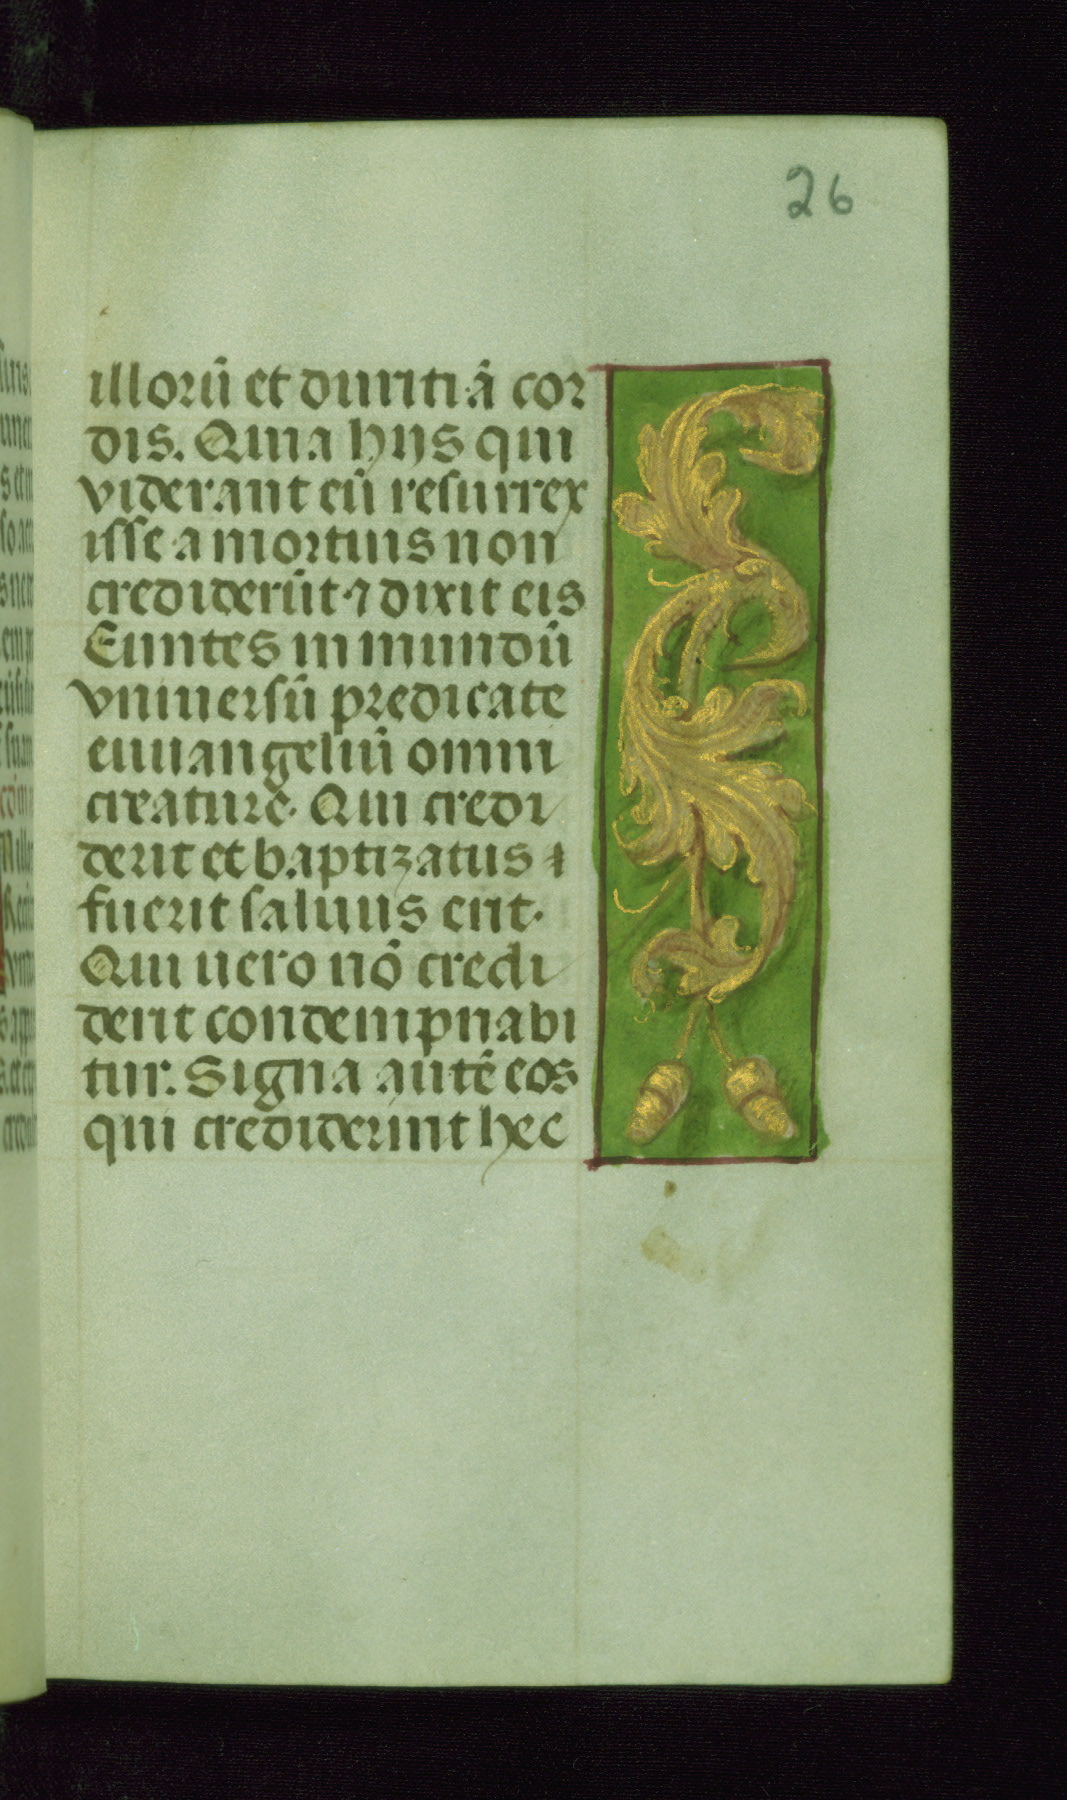 26
illorū et duritiā cor
dis. Quia hijs qui
viderant eū resurrex
isse a mortuis non
crediderūt ⁊ dixit eis
Euntes in mundū
vniuersū predicate
euuangeliū omni
creature. Qui credi
derit et baptizatus
fuerit saluus erit.
Qui uero nō credi
derit condempnabi
tur. Signa autē eos
qui crediderint hec